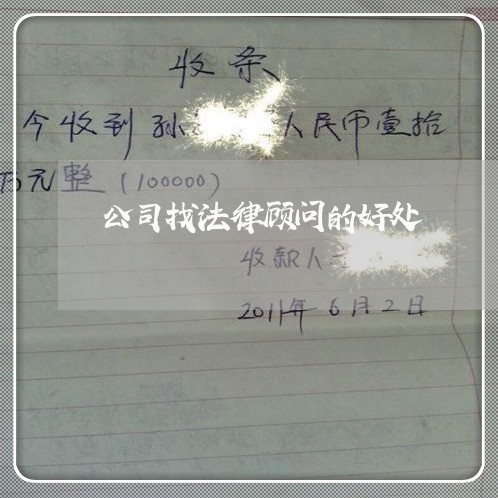 收条
今收到孙 人民币壹拾
万元整(100000)
公司找法律顾问的好处
收款人
2011年6月2日